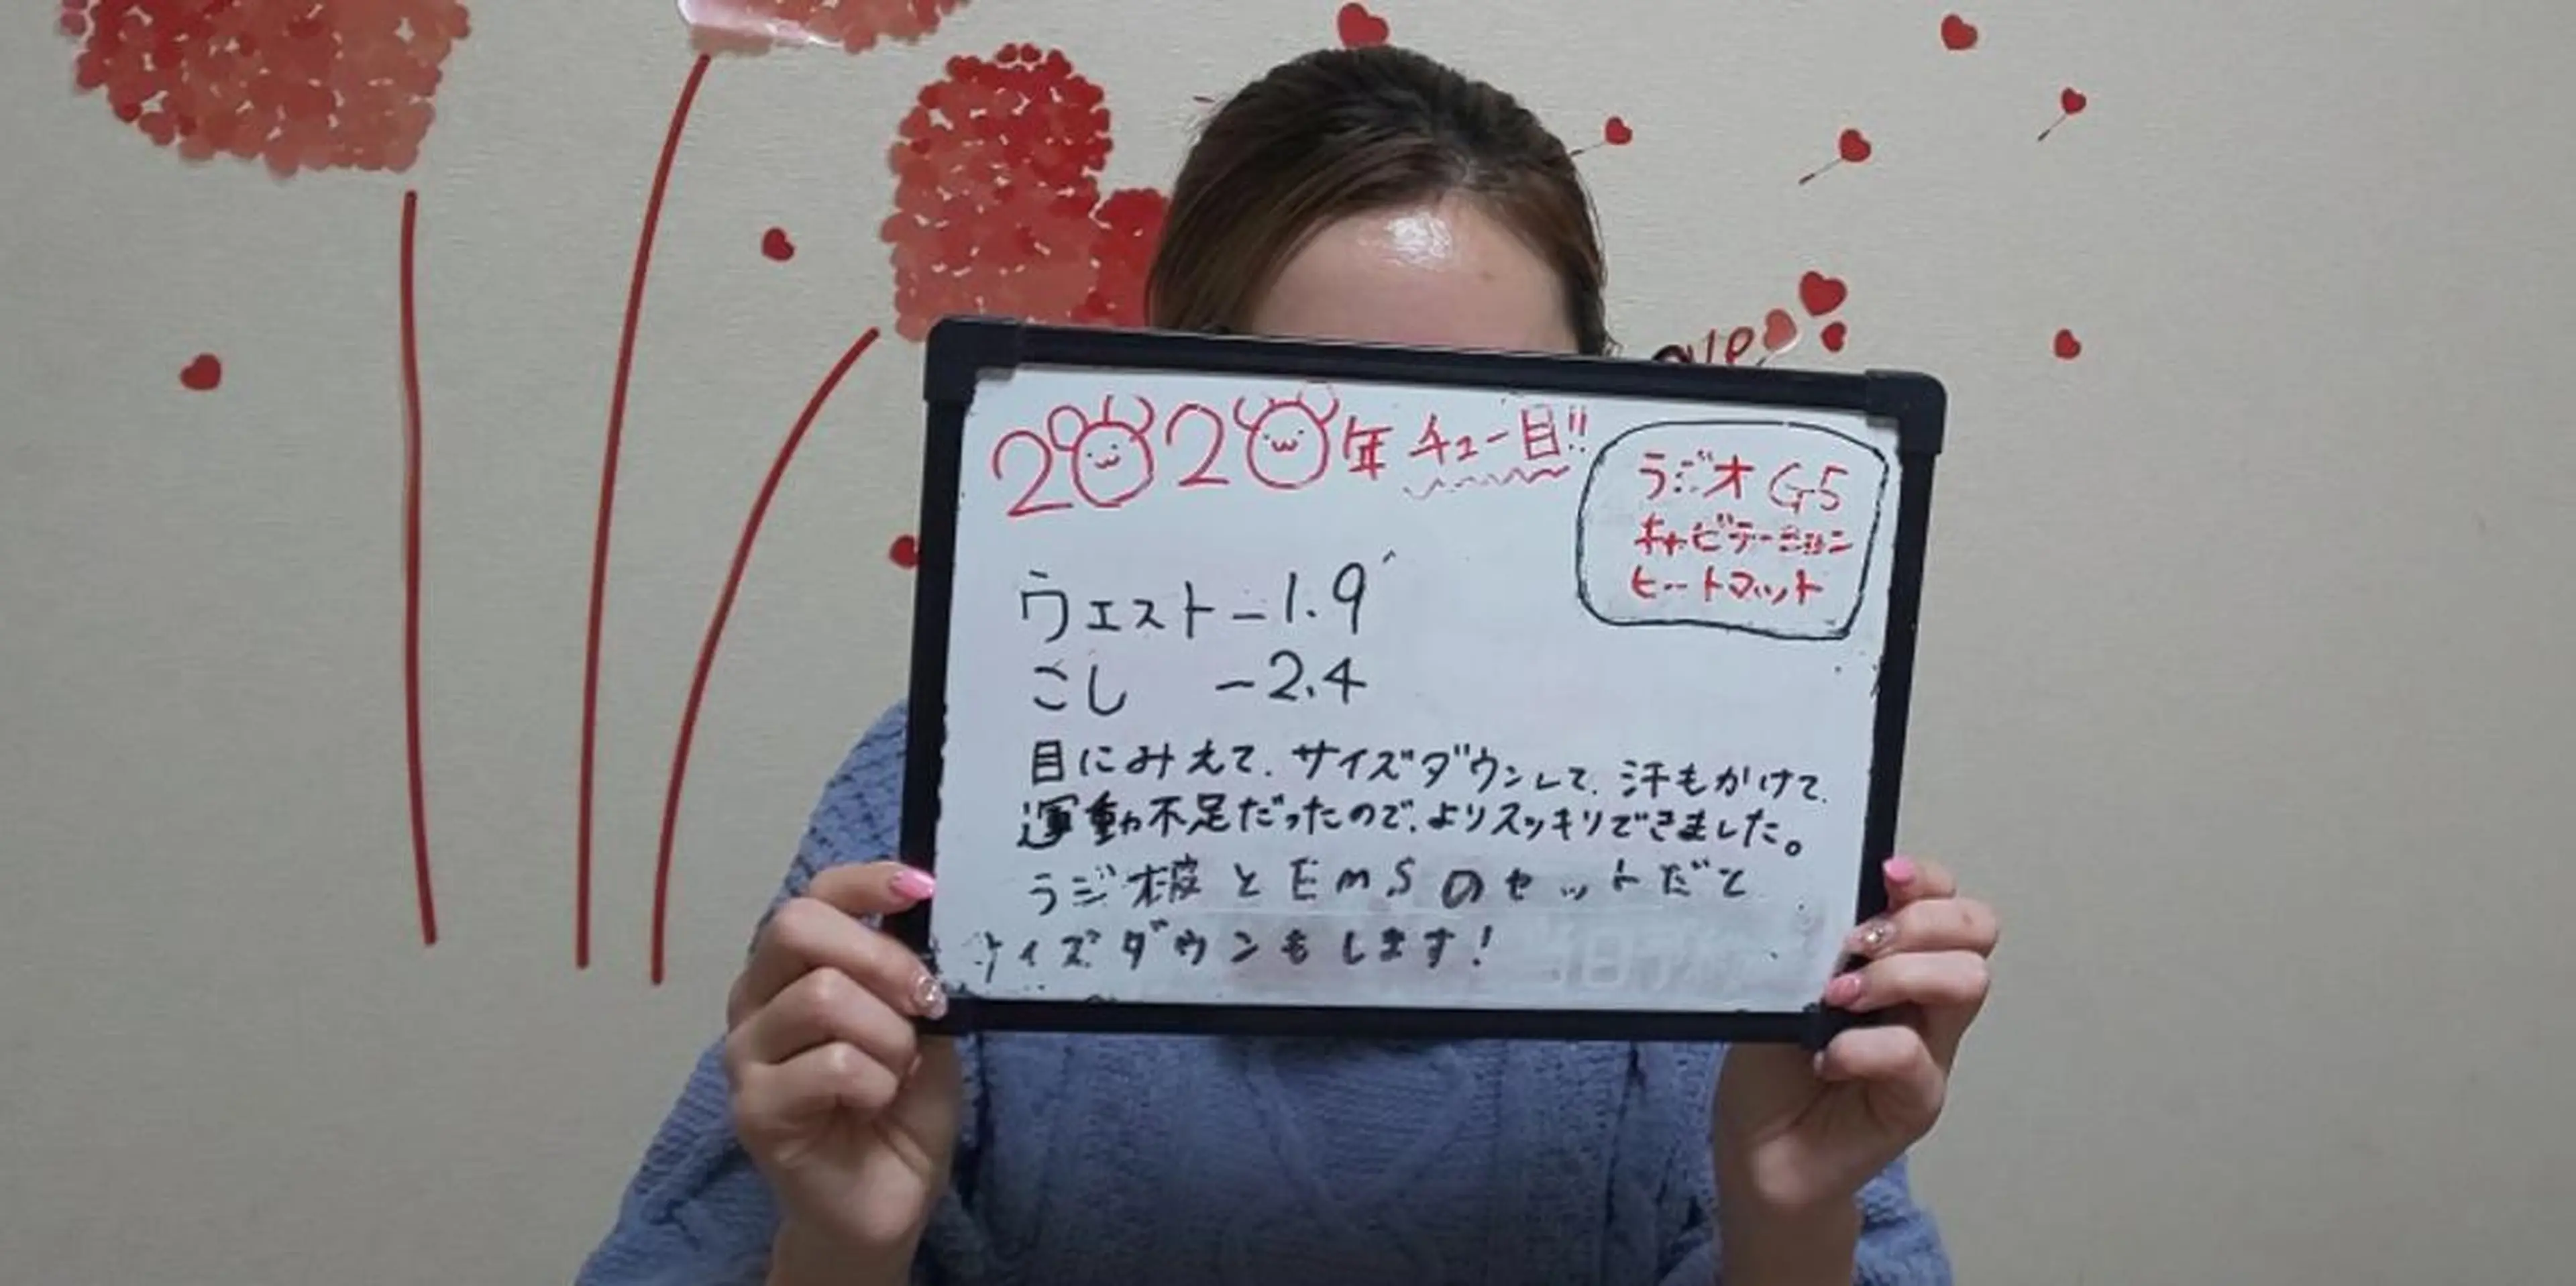 2020年チュー目!!
ラジオ G5
キャビテーション
ヒートマット
ウエスト -1.9
こし -2.4
目にみえて、サイズダウンして、汗もかけて、
運動不足だったので、よりスッキリできました。
ラジオ波とEMSのセットだと
サイズダウンもします!